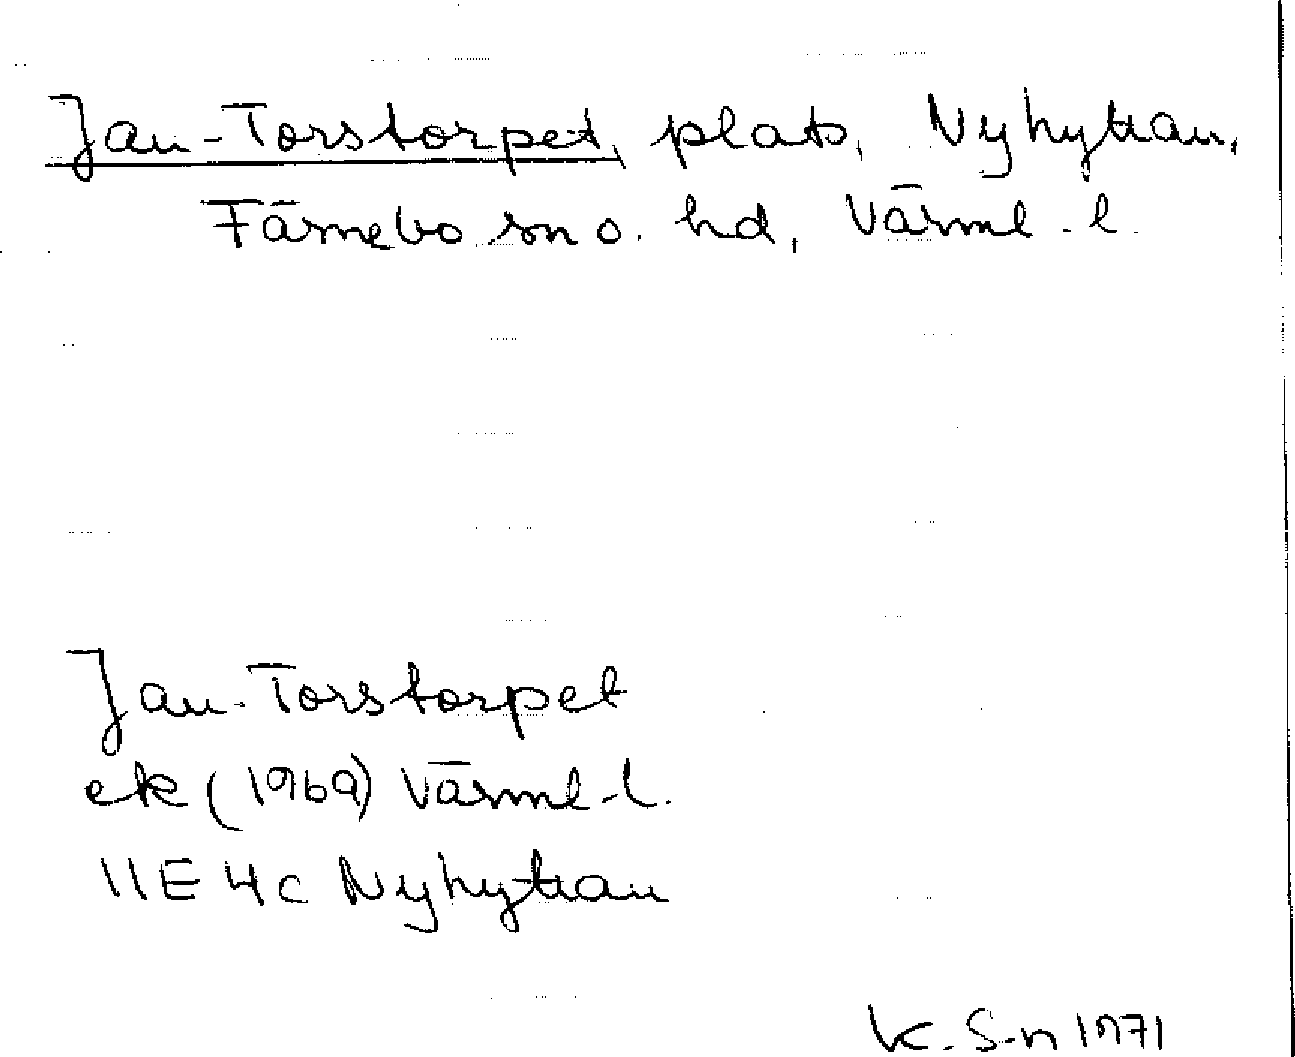 Jan-Torstorpet, plats, Nyhyttan,
Färnebo sn o. hd, Värml. l.
Jan-Torstorpet
ek (1969) Värml. l.
11E 4c Nyhyttan
K. S-n 1971